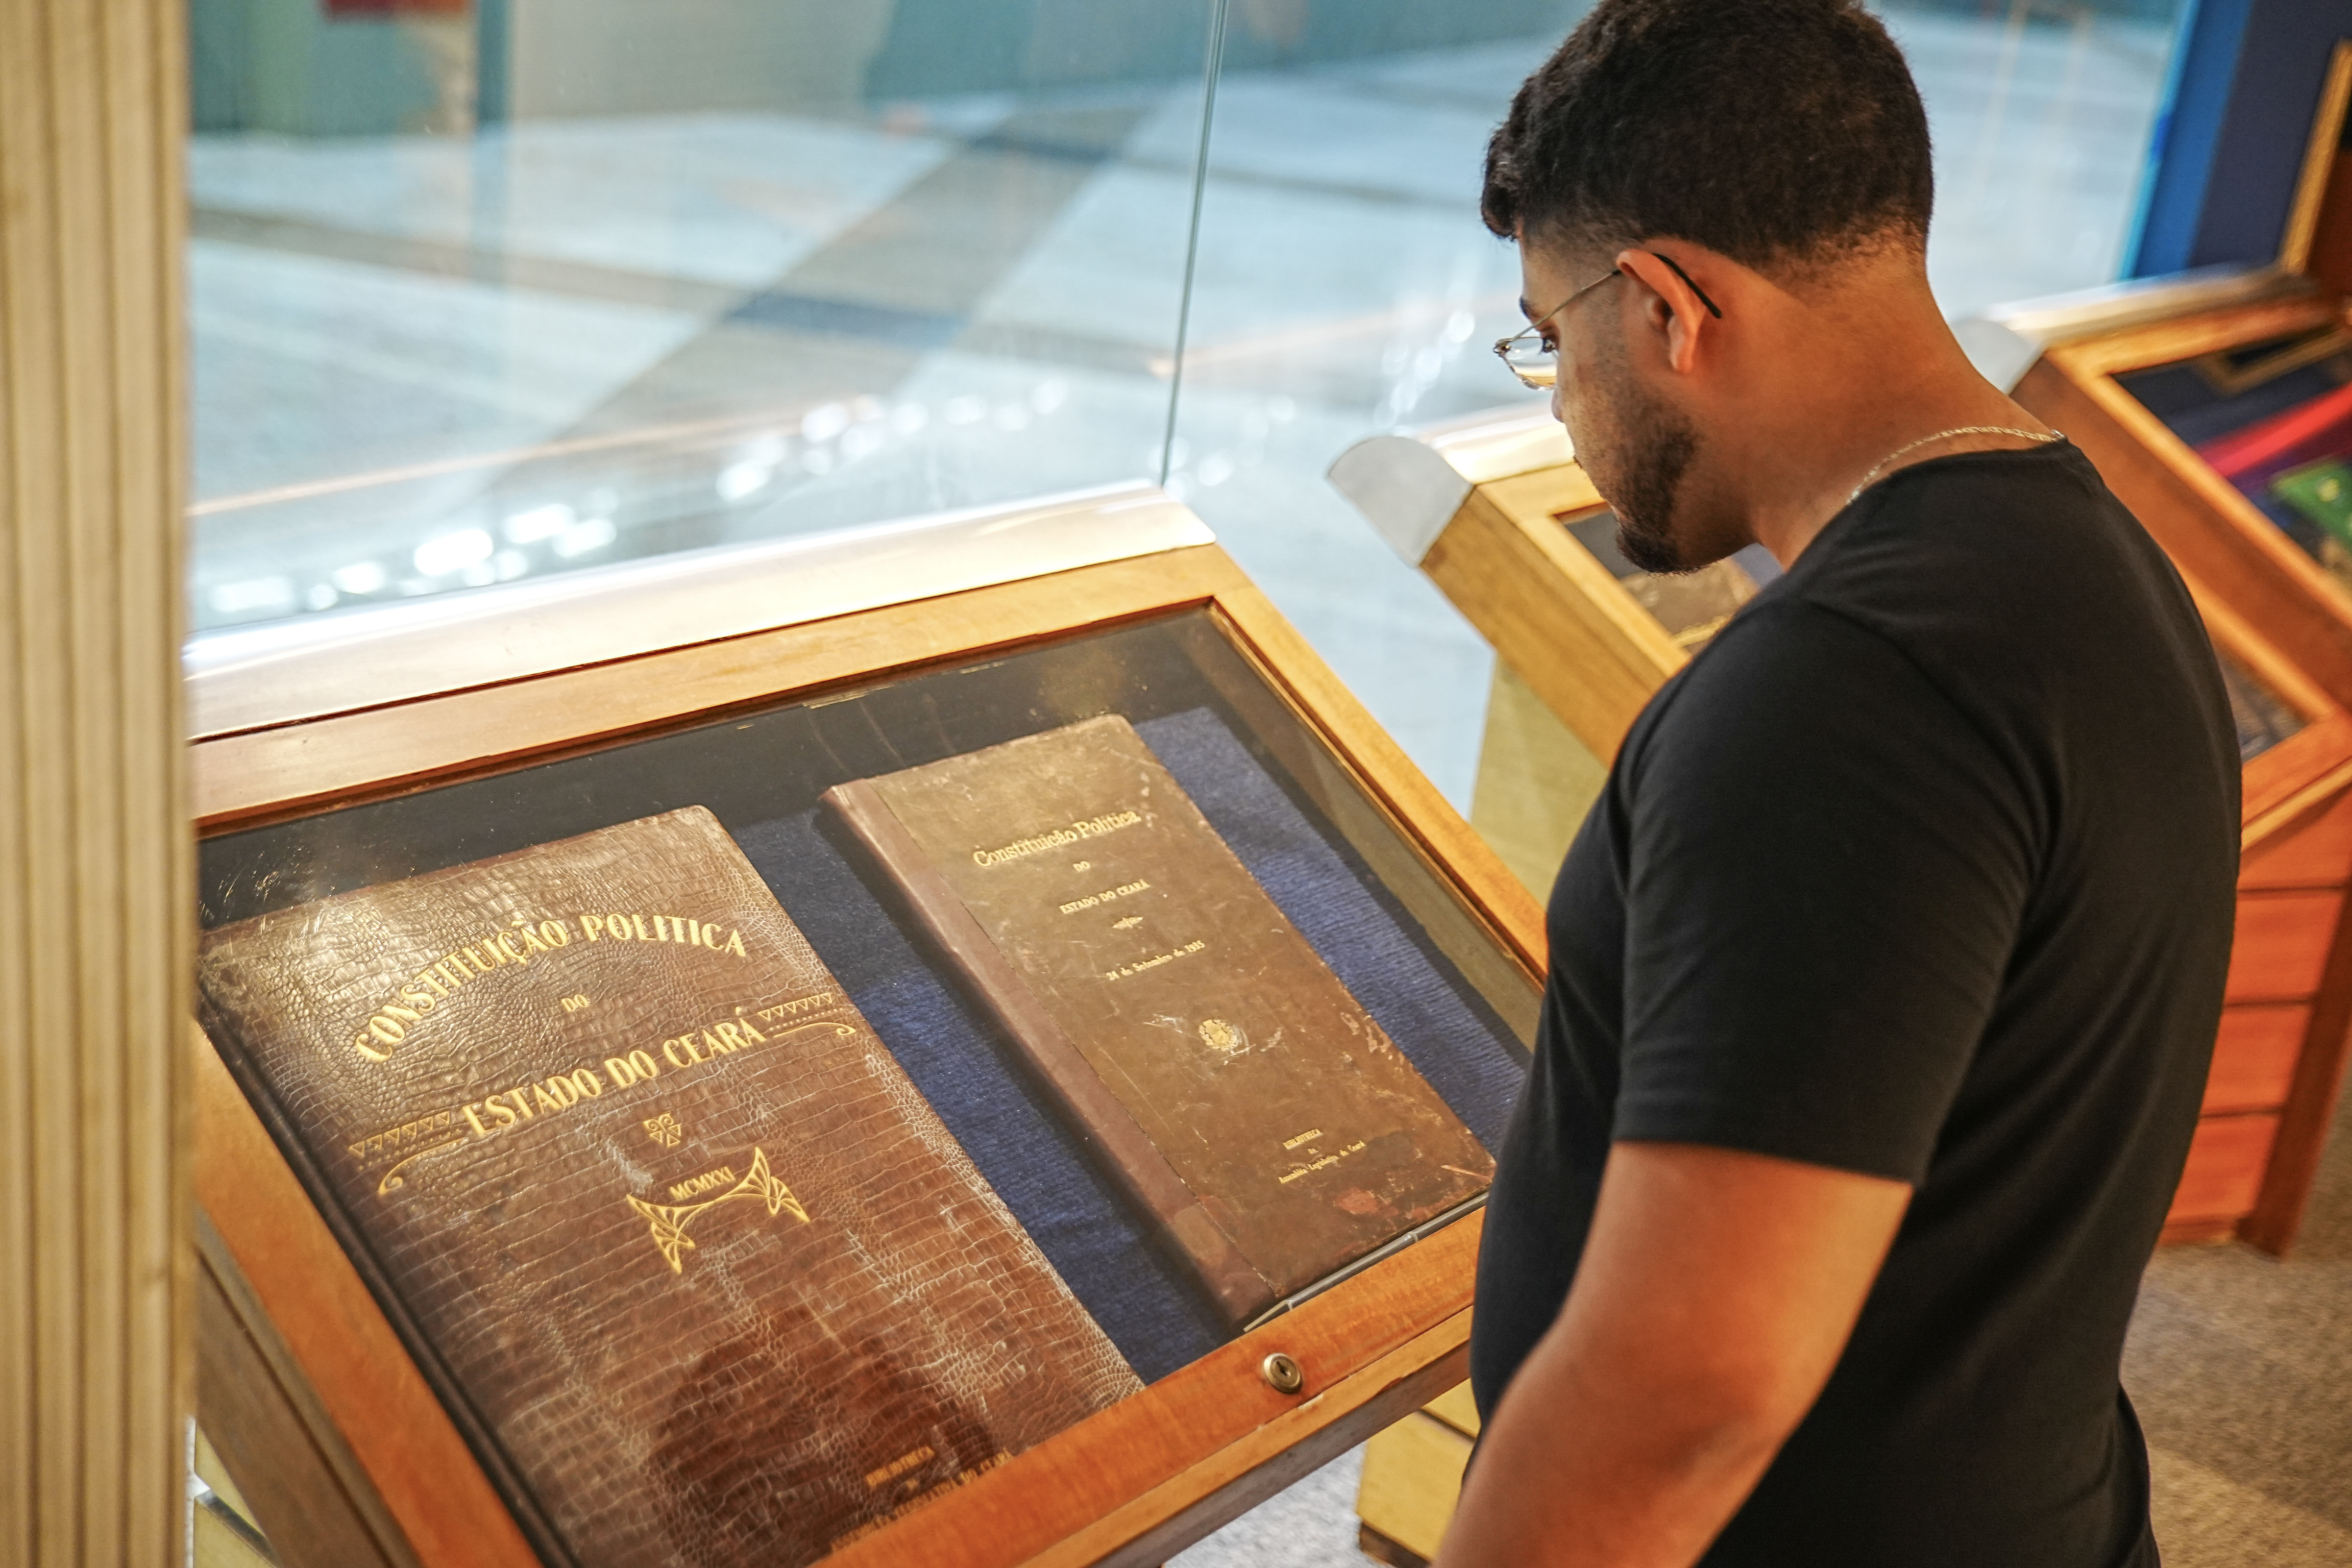 CONSTITUIÇÃO POLITICA
DO
ESTADO DO CEARÁ
MCMXXI
BIBLIOTHECA
Constituição Politica
DO
ESTADO DO CEARÁ
24 de Setembro de 1935
BIBLIOTHECA
da
Assembléa Legislativa do Ceará